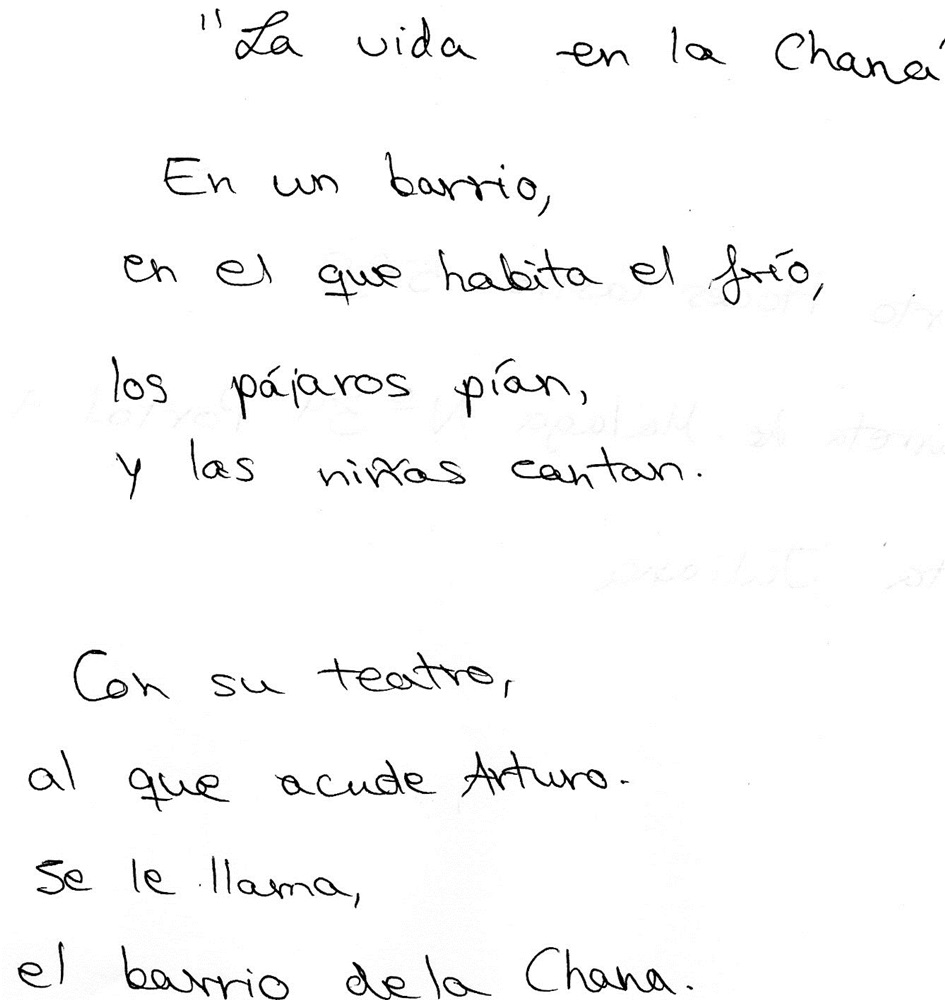 "La vida en la Chana"
En un barrio,
en el que habita el frío,
los pájaros pían,
y las niñas cantan.
Con su teatro,
al que acude Arturo.
Se le llama,
el barrio de la Chana.